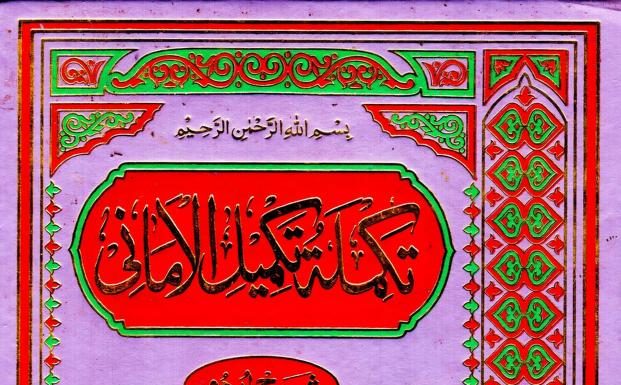 بِسْمِ اللهِ الرَّحْمٰنِ الرَّحِيْمِ
تَكمِلَةُ تكمِيلِ الاَمَانِى